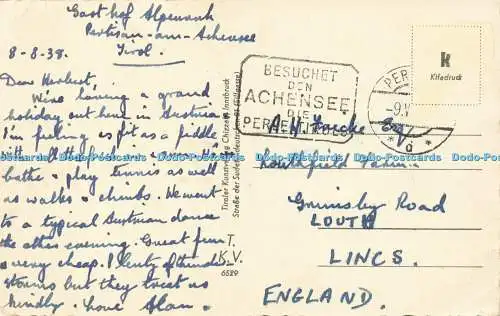 Gasthof Alpenrank
Pertisan-am-Achensee
Tirol.
8-8-38.
Dear Herbert,
We're having a grand
holiday out here in Austria
I'm feeling as fit as a fiddle
with
bathe + play tennis as well
as walks + climbs. We went
to a typical Austrian dance
the other evening. Great fun
+ very cheap. Plenty of thunder-
storms but they treat us
kindly. Love Alan.
Tiroler Kunstverlag Chizzali Innsbruck
T.
K.V.
6529
BESUCHET
DEN
ACHENSEE
DIE
PERLE TIROLS
PER
-9.V
d
k
Kifedruck
A.H. Esq
Southfield Farm
Grimsby Road
LOUTH
LINCS.
ENGLAND.
Dodo-Postcards Dodo-Postcards Dodo-Postcards Dodo-Postcards Dodo-Postcards Dodo-Postcards